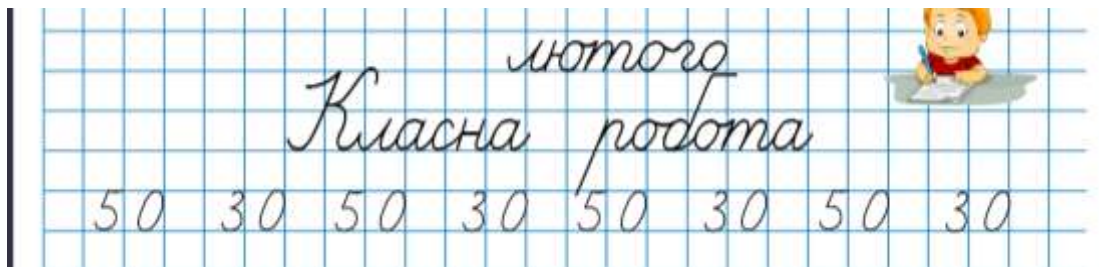 лютого
Класна робота
50 30 50 30 50 30 50 30